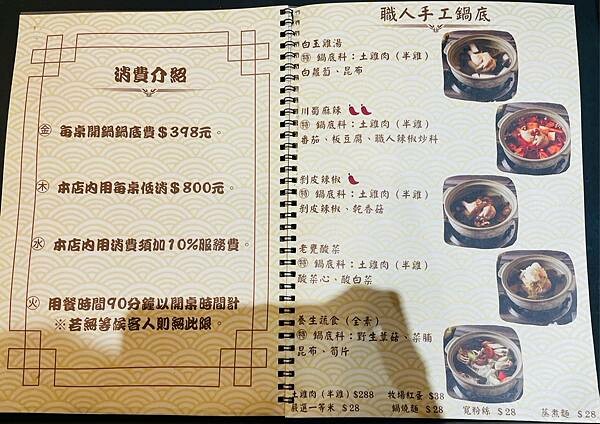 消費介紹
金 每桌開鍋鍋底費＄398元。
木 本店內用每桌低消＄800元。
水 本店內用消費須加10%服務費。
火 用餐時間90分鐘以開桌時間計
※若無等候客人則無此限。
職人手工鍋底
白玉雞湯
特 鍋底料：土雞肉（半雞）
白蘿蔔、昆布
川蜀麻辣
特 鍋底料：土雞肉（半雞）
番茄、板豆腐、職人辣椒炒料
剝皮辣椒
特 鍋底料：土雞肉（半雞）
剝皮辣椒、乾香菇
老甕酸菜
特 鍋底料：土雞肉（半雞）
酸菜心、酸白菜
養生蔬食（全素）
特 鍋底料：野生蕈菇、菜脯
昆布、筍片
土雞肉（半雞）$288 牧場紅蛋 $38
嚴選一等米 $28 鍋燒麵 $28 寬粉絲 $28 蒸煮麵 $28